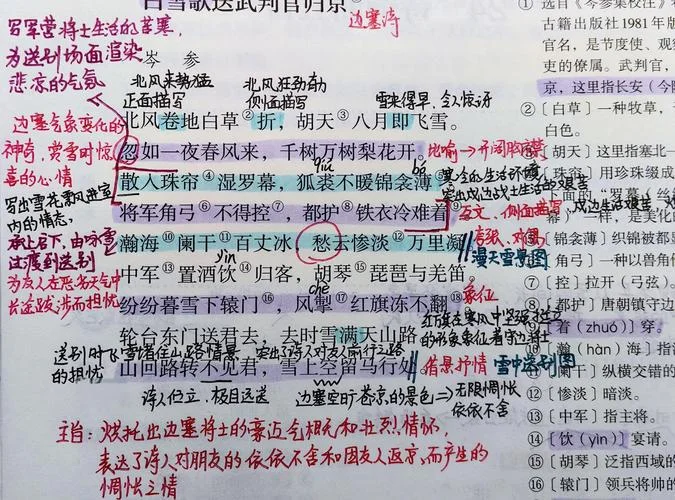 白雪歌送武判官归京
边塞诗
写军营将士生活的苦寒,
为送别场面渲染
悲凉的气氛
岑参
北风来势猛
正面描写
北风狂劲
侧面描写
雪来得早、令人惊讶
北风卷地白草②折,胡天③八月即飞雪。
边塞气象变化的
神奇,赏雪时惊
喜的心情
忽如一夜春风来,千树万树梨花开。
散入珠帘④湿罗幕,狐裘不暖锦衾薄⑤。
qiú
bó
写出雪花乘风进室
内的情态,
承上启下,由咏雪
过渡到送别
将军角弓⑥不得控⑦,都护⑧铁衣冷难着⑨。
互文、侧面描写
瀚海⑩阑干⑪百丈冰,愁云惨淡⑫万里凝。
夸张、对偶
漫天雪景图
为友人在恶劣天气中
长途跋涉而担忧
yìn
中军⑬置酒饮⑭归客,胡琴⑮琵琶与羌笛。
纷纷暮雪下辕门⑯,风掣⑰红旗冻不翻⑱。
chè
象征
轮台东门送君去,去时雪满天山路。
红旗在寒风中坚强挺立
的形象象征着守边将士
送别时飞雪堵住山路情景,突出了诗人对友人前行之路
的担忧
山回路转不见君,雪上空留马行处。
借景抒情
雪中送别图
诗人伫立、极目远送
边塞空旷苍凉的景色
无限惆怅
依依不舍
主旨:烘托出边塞将士的豪迈气概和壮烈情怀,
表达了诗人对朋友的依依不舍和因友人返京而产生的
惆怅之情
①选自《岑参集校注》
古籍出版社1981年版
官名,是节度使、观察
吏的僚属。武判官,
京,这里指长安(今陕
②〔白草〕一种牧草,
白色。
〔胡天〕这里指塞北一
〔珠帘〕用珍珠缀成
〔锦衾薄〕织锦被都显
〔角弓〕一种以兽角
⑦〔控〕拉开(弓弦)。
⑧〔都护〕唐朝镇守边
〔着(zhuó)〕穿。
〔瀚(hàn)海〕指沙
〔阑干〕纵横交错的
⑫〔惨淡〕暗淡。
⑬〔中军〕指主将。
⑭〔饮(yìn)〕宴请。
⑮〔胡琴〕泛指西域的
⑯〔辕门〕领兵将帅的